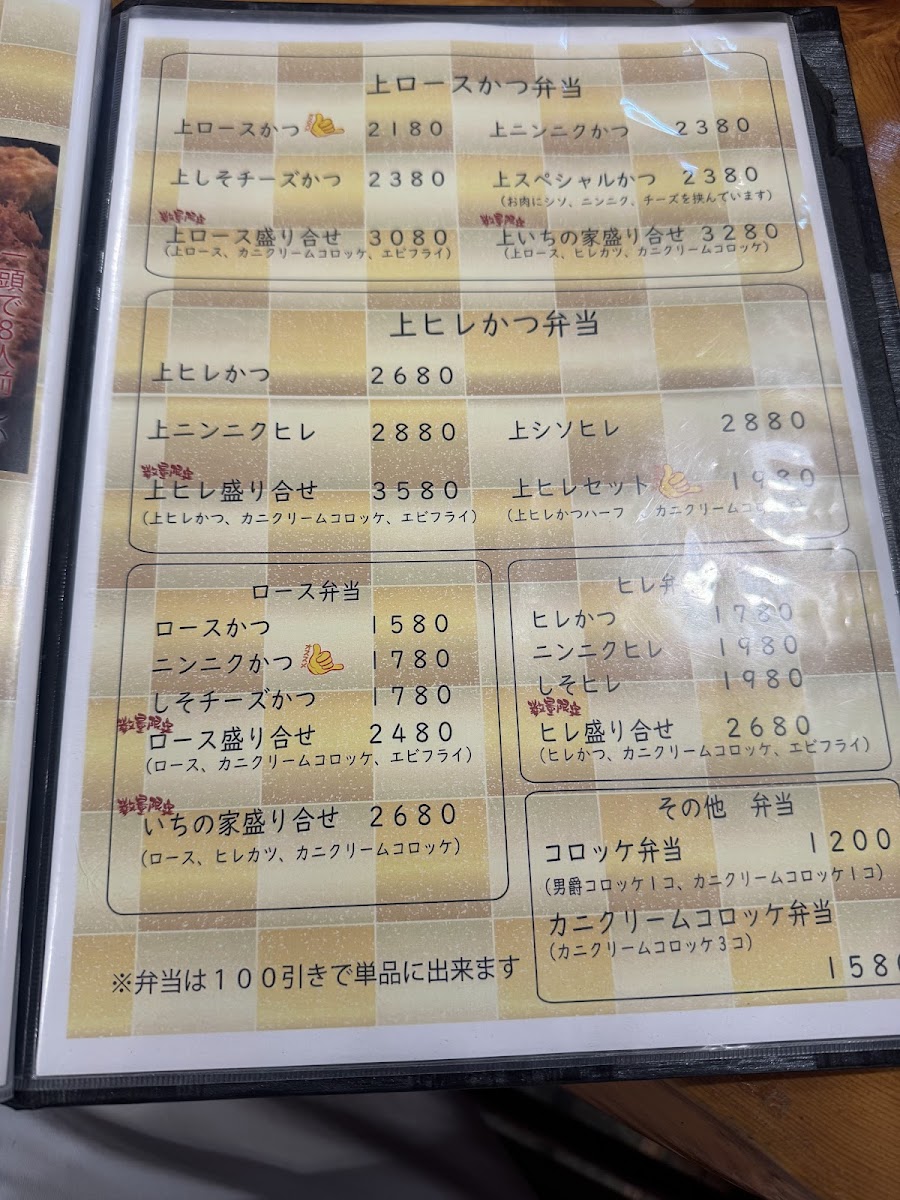 上ロースかつ弁当
上ロースかつ 2180 上ニンニクかつ 2380
上しそチーズかつ 2380 上スペシャルかつ 2380
(お肉にシソ、ニンニク、チーズを挟んでいます)
数量限定 数量限定
上ロース盛り合せ 3080 上いちの家盛り合せ 3280
(上ロース、カニクリームコロッケ、エビフライ) (上ロース、ヒレカツ、カニクリームコロッケ)
上ヒレかつ弁当
上ヒレかつ 2680
上ニンニクヒレ 2880 上シソヒレ 2880
数量限定
上ヒレ盛り合せ 3580 上ヒレセット 1980
(上ヒレかつ、カニクリームコロッケ、エビフライ) (上ヒレかつハーフ カニクリームコ
ロース弁当
ロースかつ 1580
ニンニクかつ 1780
しそチーズかつ 1780
数量限定
ロース盛り合せ 2480
(ロース、カニクリームコロッケ、エビフライ)
数量限定
いちの家盛り合せ 2680
(ロース、ヒレカツ、カニクリームコロッケ)
ヒレ弁
ヒレかつ 1780
ニンニクヒレ 1980
しそヒレ 1980
数量限定
ヒレ盛り合せ 2680
(ヒレかつ、カニクリームコロッケ、エビフライ)
その他 弁当
コロッケ弁当 1200
(男爵コロッケ1コ、カニクリームコロッケ1コ)
カニクリームコロッケ弁当
(カニクリームコロッケ3コ)
1580
※弁当は100引きで単品に出来ます
一頭で8人